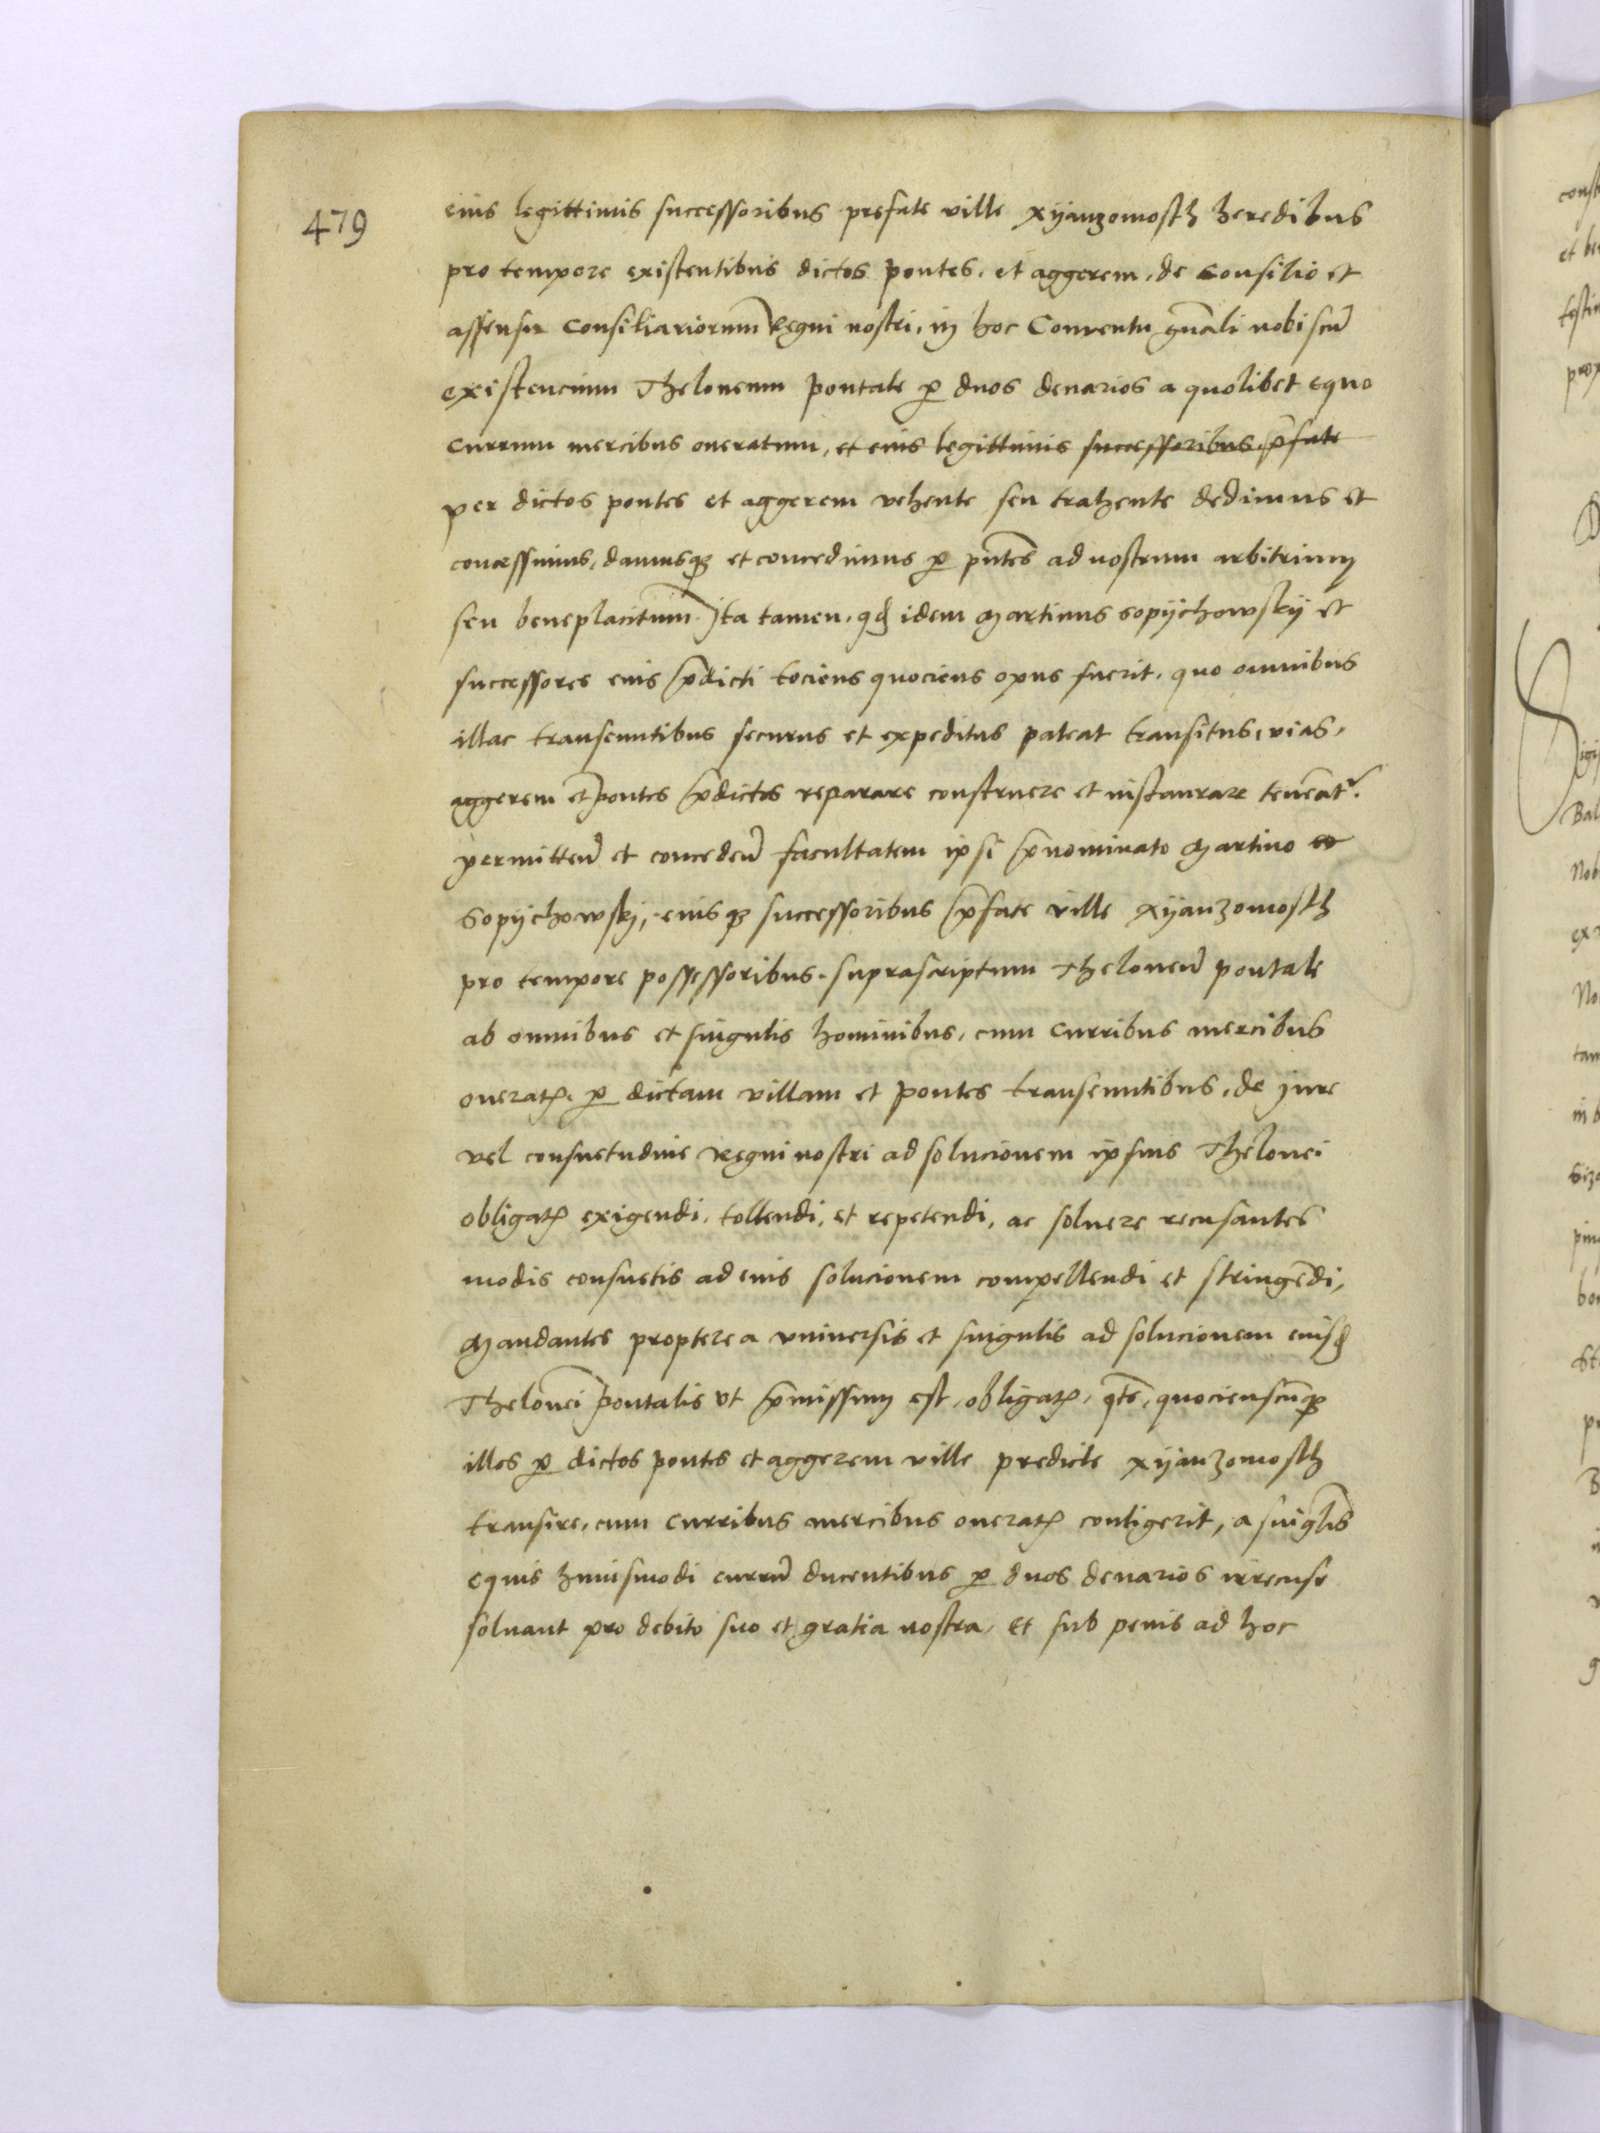 479
eius legittimis successoribus prefate ville Xyanzomosth heredibus
pro tempore existentibus dictos pontes, et aggerem, de consilio et
assensu Consiliariorum Regni nostri, in hoc Conventu gn̄ali nobiscū
existencium Theloneum pontale ꝑ duos denarios a quolibet equo
currum mercibus oneratum, et eius legittimis successoribus p̄fate
per dictos pontes et aggerem vehente seu trahente dedimus et
concessimus, damusqꝫ et concedimus ꝑ pn̄tes ad nostrum arbitrium
seu beneplacitum. Ita tamen, qđ idem Martinus Sopijchowskij et
successores eius p̄dicti tociens quociens opus fuerit, quo omnibus
illac transeuntibus securus et expeditus pateat transitus, vias,
aggerem et pontes p̄dictos reparare construere et instaurare teneāt᷑.
permitteñ et concedeñ facultatem ipsi p̄nominato Martino et
Sopijchowskj, eiusqꝫ successoribus p̄fate ville Xyanzomosth
pro tempore possessoribus, suprascriptum Theloneū pontale
ab omnibus et singulis hominibus, cum curribus mercibus
oneratꝭ ꝑ dictam villam et pontes transeuntibus, de jure
vel consuetudine Regni nostri ad solucionem ipsius Thelonei
obligatꝭ exigendi, tollendi, et repetendi, ac soluere recusantes
modis consuetis ad eius solucionem compellendi et stringēdi,
Mandantes propterea vniuersis et singulis ad solucionem eiusđ
Thelonei pontalis vt p̄missum est, obligatꝭ, qt̄s, quocienscūqꝫ
illos ꝑ dictos pontes et aggerem ville predicte Xyanzomosth
transire, cum curribus mercibus oneratꝭ contigerit, a singl̄is
equis huiusmodi currū ducentibus ꝑ duos denarios irrecuse
soluant pro debito suo et gratia nostra, Et sub penis ad hoc